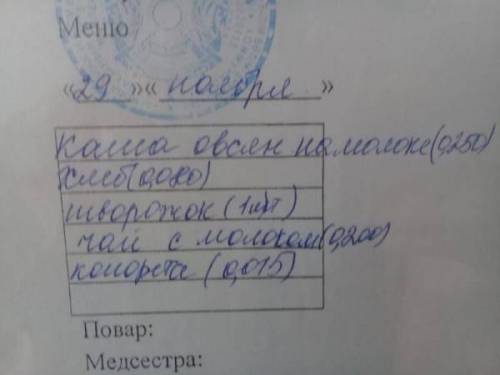 Меню
«29»« ноября »
Каша овсян на молоке(0,250)
хлеб(0,080)
творожок (1шт)
чай с молоком(0,200)
конфета (0,015)
Повар:
Медсестра: